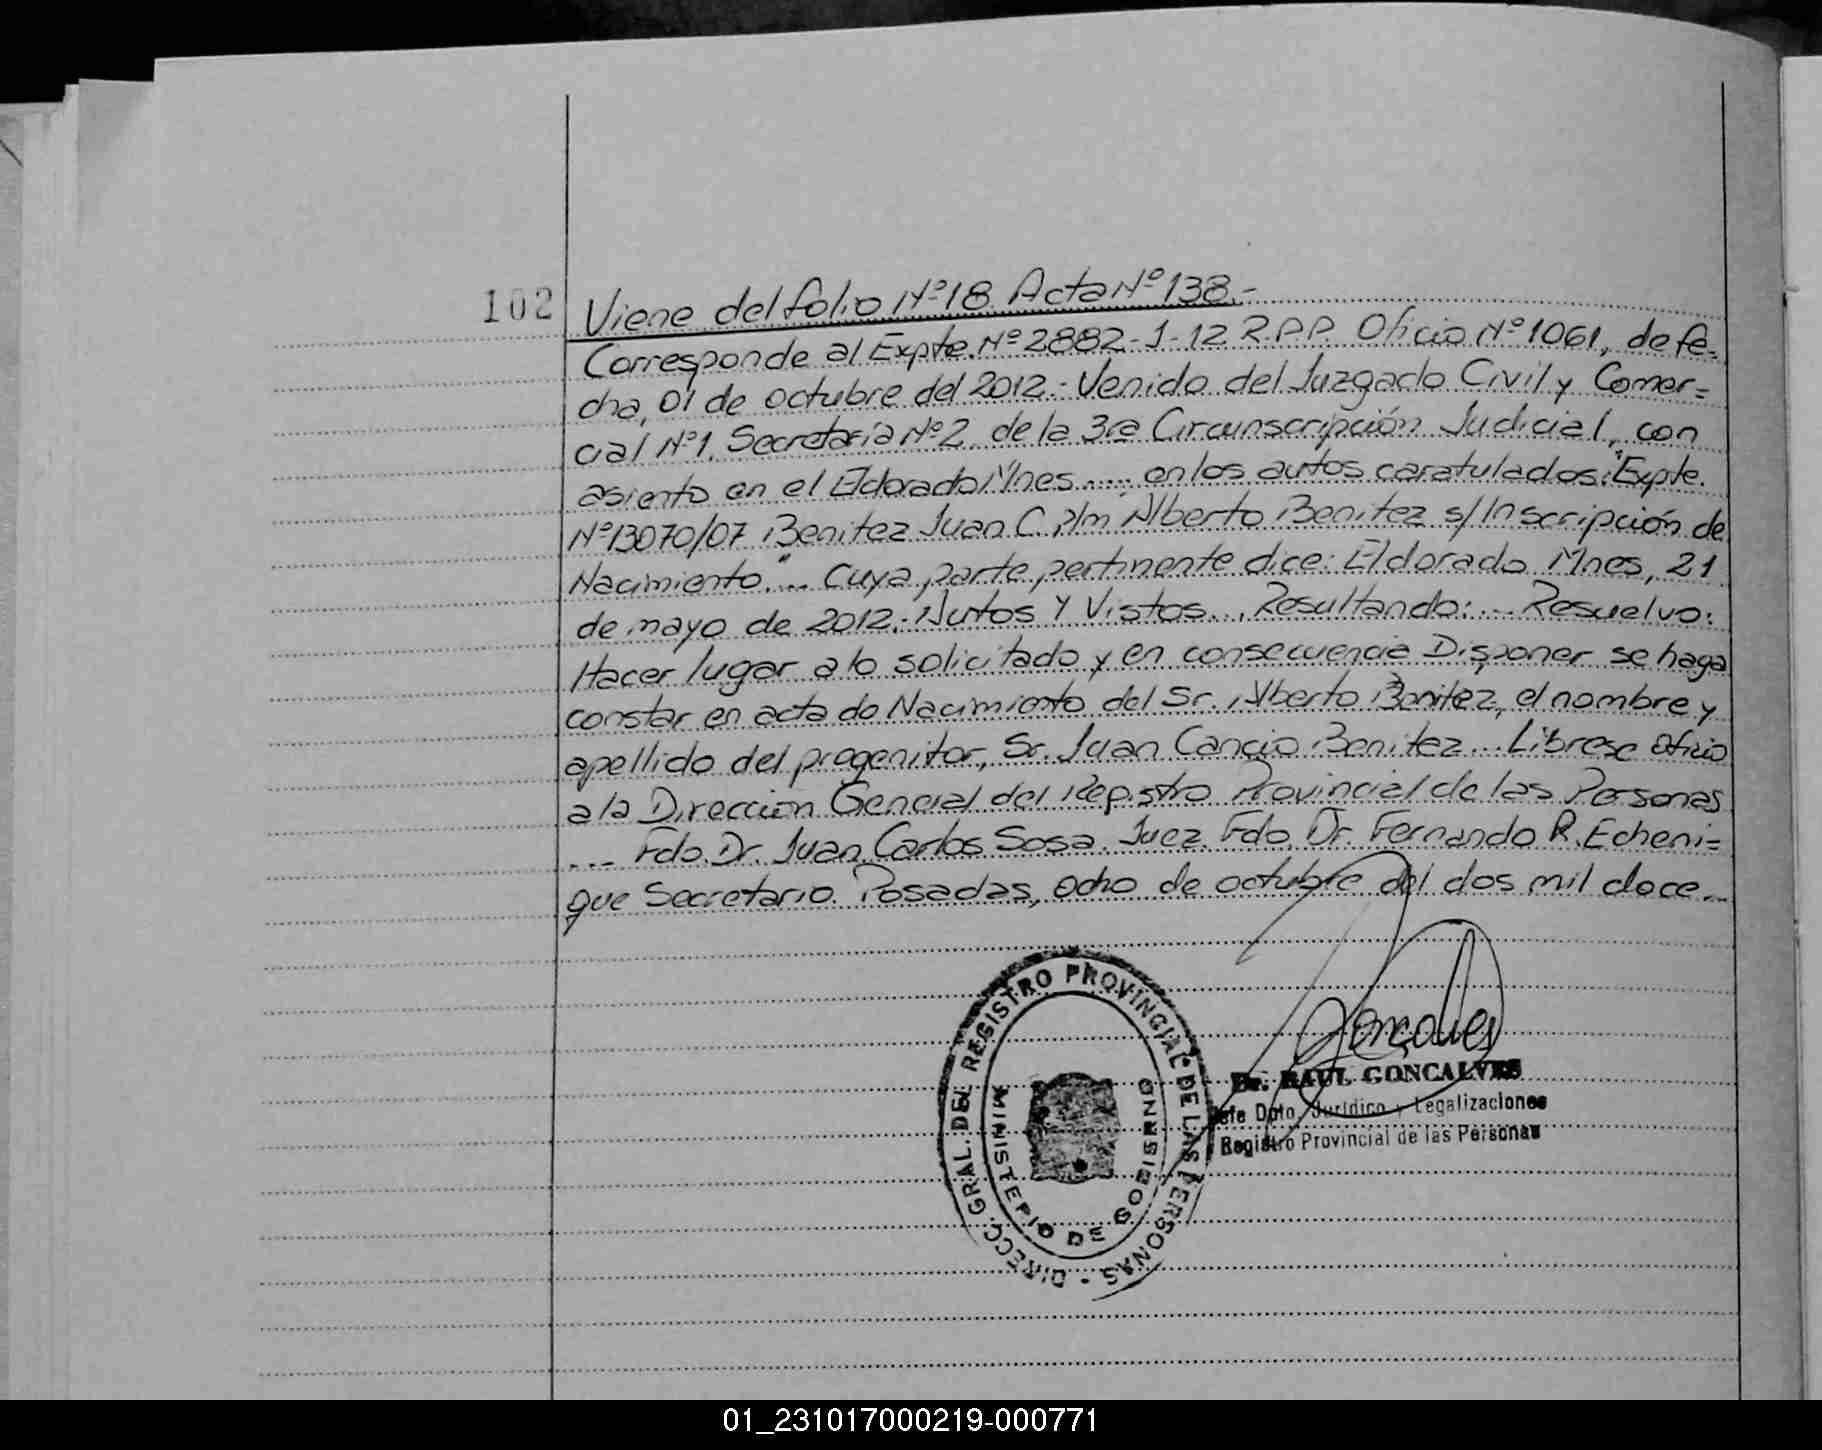 102
Viene del folio Nº 18 Acta Nº 138.-
Corresponde al Expte. Nº 2882-J-12 R.P.P. Oficio Nº 1061, de fe=
cha, 01 de octubre del 2012.- Venido del Juzgado Civil y Comer=
cial Nº 1. Secretaría Nº 2 de la 3ra Circunscripción Judicial, con
asiento en el Eldorado Mnes .... en los autos caratulados: "Expte.
Nº 13070/07 Benitez Juan C. p/m Alberto Benitez s/ Inscripción de
Nacimiento."... Cuya parte pertinente dice: Eldorado Mnes, 21
de mayo de 2012.- Autos Y Vistos... Resultando:... Resuelvo:
Hacer lugar a lo solicitado y en consecuencia Disponer se haga
constar en acta de Nacimiento del Sr. Alberto Benitez, el nombre y
apellido del progenitor, Sr. Juan Cancio Benitez... Librese oficio
a la Dirección General del Registro Provincial de las Personas
... Fdo. Dr. Juan Carlos Sosa. Juez. Fdo. Dr. Fernando R. Echeni=
que Secretario. Posadas, ocho de octubre del dos mil doce...
DIRECC. GRAL. DEL REGISTRO PROVINCIAL DE LAS PERSONAS -
MINISTERIO DE GOBIERNO
Goncalves
Dr. RAUL GONCALVES
Jefe Dpto. Jurídico y Legalizaciones
Registro Provincial de las Personas
01_231017000219-000771